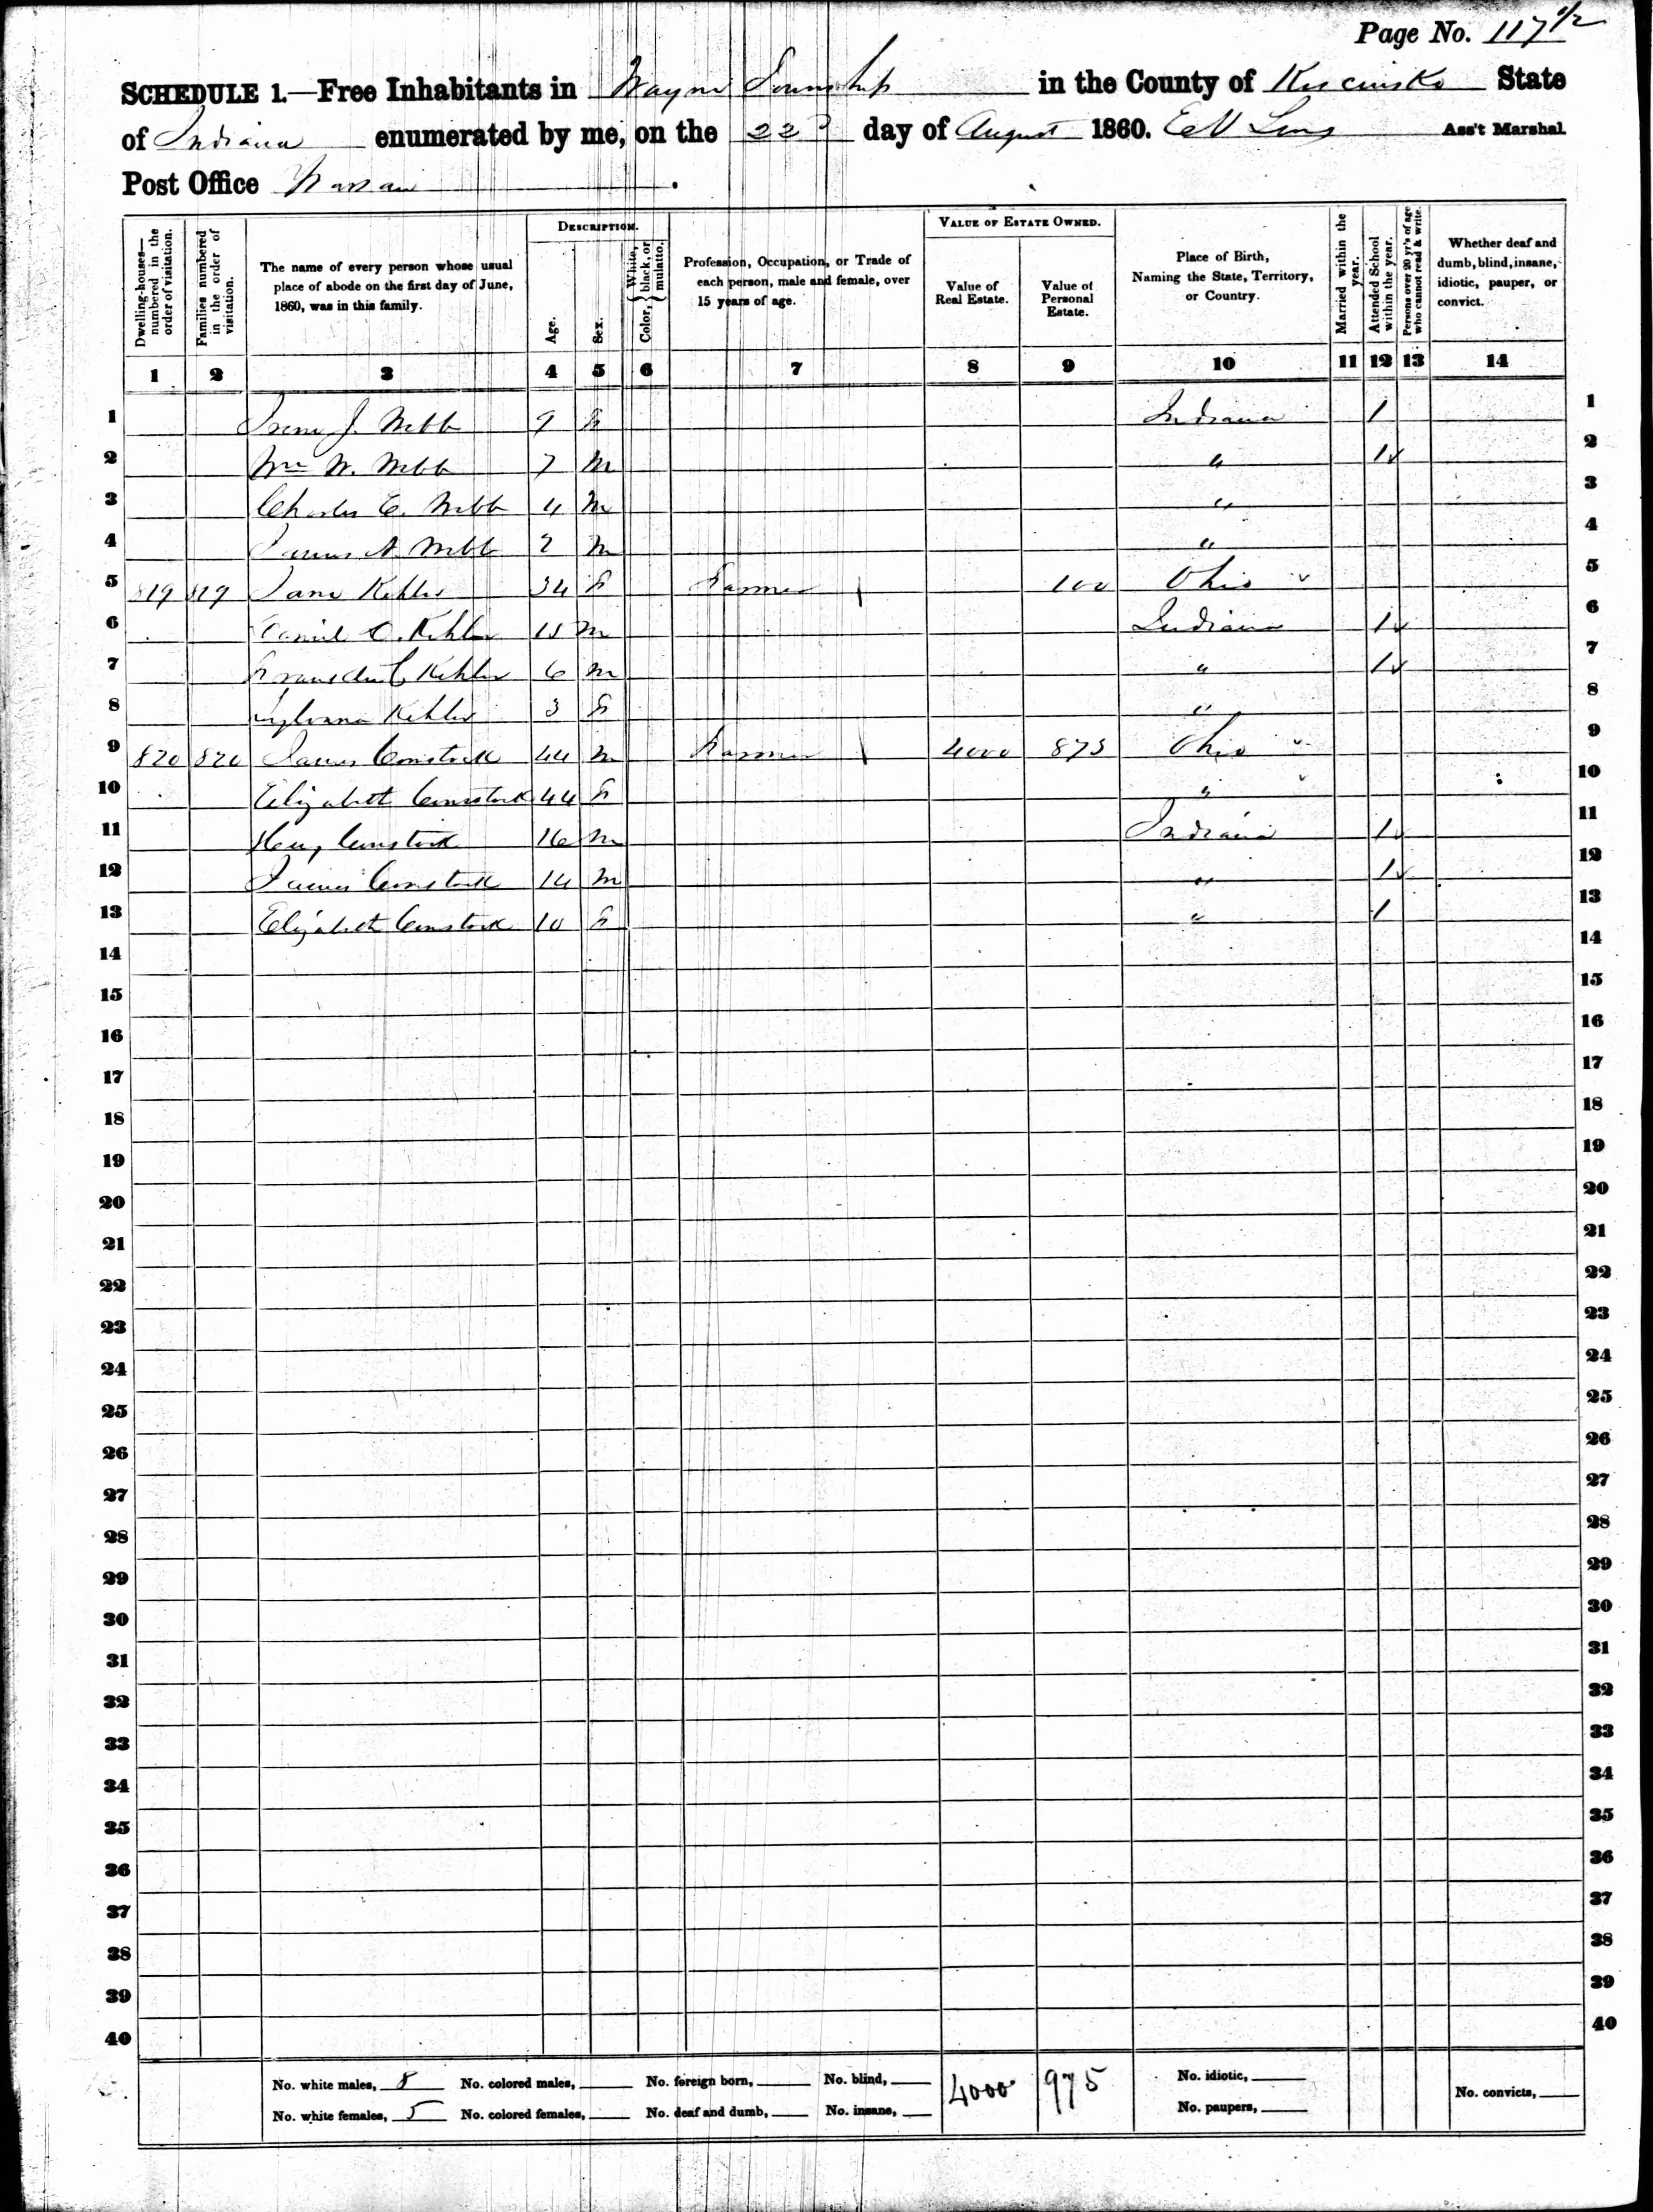 Page No. 117 1/2
SCHEDULE 1.—Free Inhabitants in Wayne Township in the County of Kosciusko State
of Indiana enumerated by me, on the 22d day of August 1860. Ass't Marshal
Post Office Warsaw
Dwelling-houses—numbered in the order of visitation.
Families numbered in the order of visitation.
The name of every person whose usual place of abode on the first day of June, 1860, was in this family.
DESCRIPTION.
Age.
Sex.
Color, { White, black, or mulatto.
Profession, Occupation, or Trade of each person, male and female, over 15 years of age.
VALUE OF ESTATE OWNED.
Value of Real Estate.
Value of Personal Estate.
Place of Birth, Naming the State, Territory, or Country.
Married within the year.
Attended School within the year.
Persons over 20 yr's of age who cannot read & write.
Whether deaf and dumb, blind, insane, idiotic, pauper, or convict.
1 2 3 4 5 6 7 8 9 10 11 12 13 14
1 J. Webb 9 f Indiana 1 1
2 Wm W. Webb 7 m " 1 2
3 Charles E. Webb 4 m " 3
4 James A. Webb 2 m " 4
5 819 819 Jane Kehler 34 f Farmer 100 Ohio 5
6 Daniel O. Kehler 15 m Indiana 1 6
7 Kehler 6 m " 1 7
8 Sylvana Kehler 3 f " 8
9 820 820 James Comstock 44 m Farmer 4000 875 Ohio 9
10 Elizabeth Comstock 44 f " 10
11 Comstock 16 m Indiana 1 11
12 James Comstock 14 m " 1 12
13 Elizabeth Comstock 10 f " 1 13
14 14
15 15
16 16
17 17
18 18
19 19
20 20
21 21
22 22
23 23
24 24
25 25
26 26
27 27
28 28
29 29
30 30
31 31
32 32
33 33
34 34
35 35
36 36
37 37
38 38
39 39
40 40
No. white males, 8 No. colored males, No. foreign born, No. blind, 4000 975 No. idiotic, No. convicts,
No. white females, 5 No. colored females, No. deaf and dumb, No. insane, No. paupers,